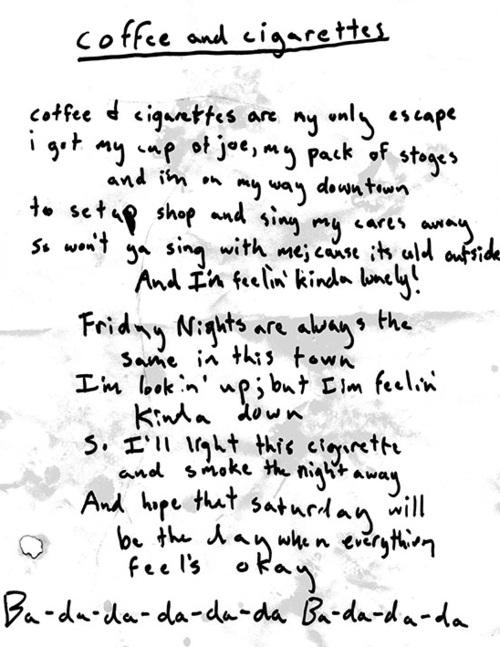 coffee and cigarettes
coffee & cigarettes are my only escape
i got my cup of joe, my pack of stoges
and i'm on my way downtown
to setup shop and sing my cares away
So won't ya sing with me; cause its cold outside
And I'm feelin' kinda lonely!
Friday Nights are always the
same in this town
I'm lookin' up; but I'm feelin'
kinda down
So I'll light this cigarette
and smoke the night away
And hope that saturday will
be the day when everything
feel's okay
Ba-da-da-da-da-da Ba-da-da-da